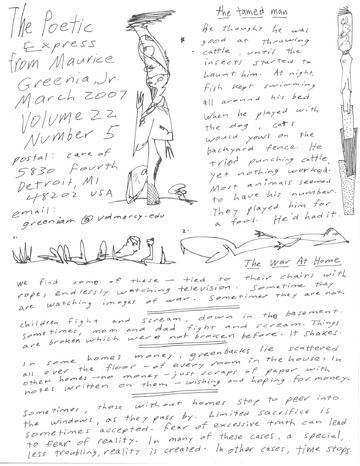 The Poetic
Express
from Maurice
Greenia, Jr.
March 2007
Volume 22
Number 5
postal: care of
5830 Fourth
Detroit, MI
48202 USA
email:
greeniam @ udmercy.edu
the tamed man
He thought he was
good at throwing
cattle, until the
insects started to
haunt him. At night,
fish kept swimming
all around his bed.
When he played with
the dog, cats
would yowl on the
backyard fence. He
tried punching cattle,
yet nothing worked.
Most animals seemed
to have his number.
They played him for
a fool. He'd had it.
1.
2.
The War At Home
We find some of these — tied to their chairs with
ropes, endlessly watching television. Sometime they
are watching images of war. Sometimes they are not.
Children fight and scream, down in the basement.
Sometimes, mom and dad fight and scream. Things
are broken which were not broken before. It shakes.
In some homes money, greenbacks lie scattered
all over the floor — of every room in the house. In
other homes — no money — just scraps of paper with
notes written on them — wishing and hoping for money.
Sometimes, those without homes stop to peer into
the windows, as they pass by. Limited sacrifice is
sometimes accepted. Fear of excessive truth can lead
to fear of reality. In many of these cases, a special,
less troubling, reality is created. In other cases, time stops.